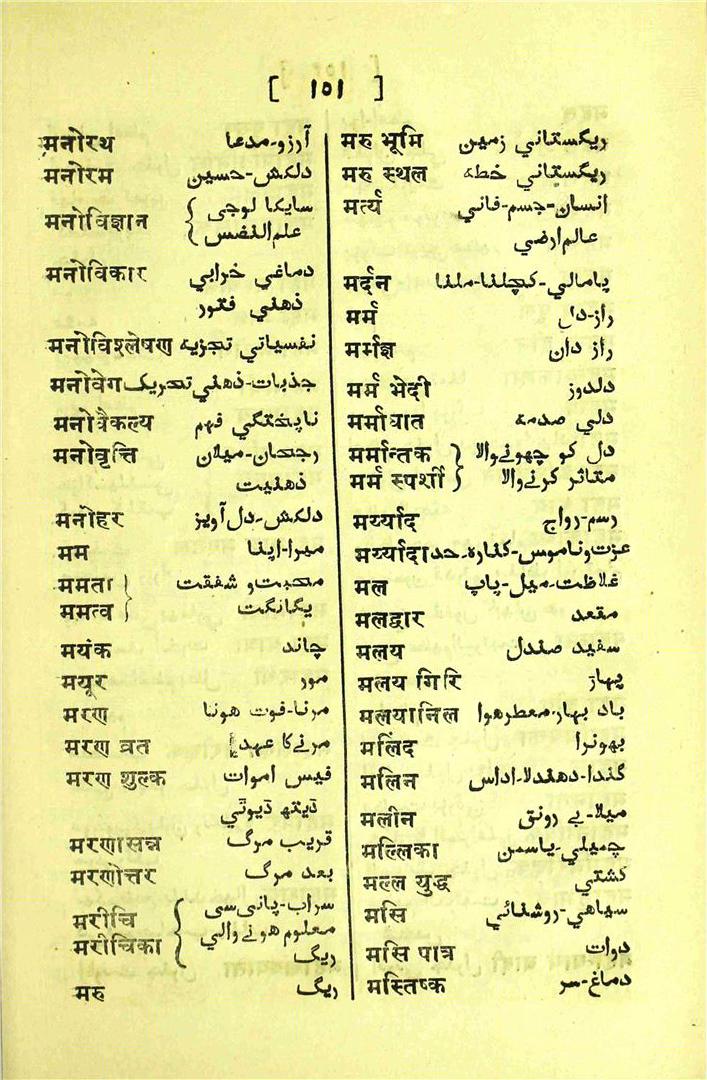 [ ۱۵۱ ]
मनोरथ آرزو-مدعا
मनोरम دلکش-حسین
मनोविज्ञान { سایکا لوجی
علم النفس
मनोविकार دماغي خرابي
ذهني فتور
मनोविश्लेषण نفسیاتي تجزیه
मनोवेग جذبات-ذهني تحریک
मनोवैकल्य ناپختگي فهم
मनोवृत्ति رجحان-میلان
ذهنیت
मनोहर دلکش-دل آویز
मम میرا-اپنا
ममता } محبت و شفقت
ममत्व } یگانگت
मयंक چاند
मयूर مور
मरण مرنا-فوت هونا
मरण व्रत مرنے کا عہد
मरण शुल्क فیس اموات
ڈیتھ ڈیوٹي
मरणासन्न قریب مرگ
मरणोत्तर بعد مرگ
मरीचि { سراب-پانی سی
मरीचिका { معلوم هونے والي
ریگ
मरु ریگ
मरु भूमि ریگستاني زمین
मरु स्थल ریگستاني خطه
मर्त्य انسان-جسم-فاني
عالم ارضي
मर्दन پامالي-کچلنا-ملنا
मर्म راز-دل
मर्मज्ञ راز دان
मर्म भेदी دلدوز
मर्माघात دلي صدمه
मर्मान्तक } دل کو چھونے والا
मर्म स्पर्शी } متاثر کرنے والا
मर्य्याद رسم-رواج
मर्य्यादा عزت و ناموس-کناره-حد
मल غلاظت-میل-پاپ
मलद्वार مقعد
मलय سفید صندل
मलय गिरि پہاڑ
मलयानिल باد بہار-معطر هوا
मलिंद بھونرا
मलिन گندا-دھندلا-اداس
मलीन میلا-بے رونق
मल्लिका چمیلي-یاسمن
मल्ल युद्ध کشتي
मसि سیاهي-روشنائي
मसि पात्र دوات
मस्तिष्क دماغ-سر